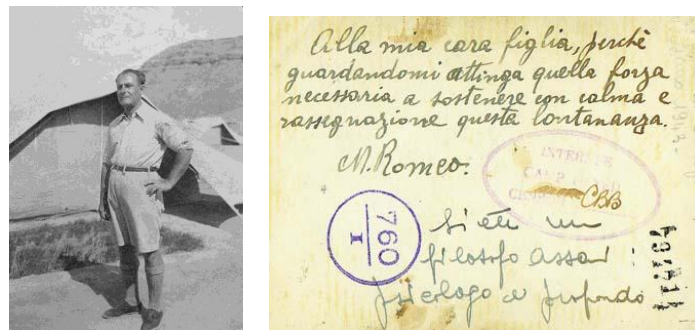 Alla mia cara figlia, perchè
guardandomi attinga quella forza
necessaria a sostenere con calma e
rassegnazione questa lontananza.
M. Romeo.
INTERNEE
CBB
760
I
Siete un
filosofo assai
psicologo e profondo